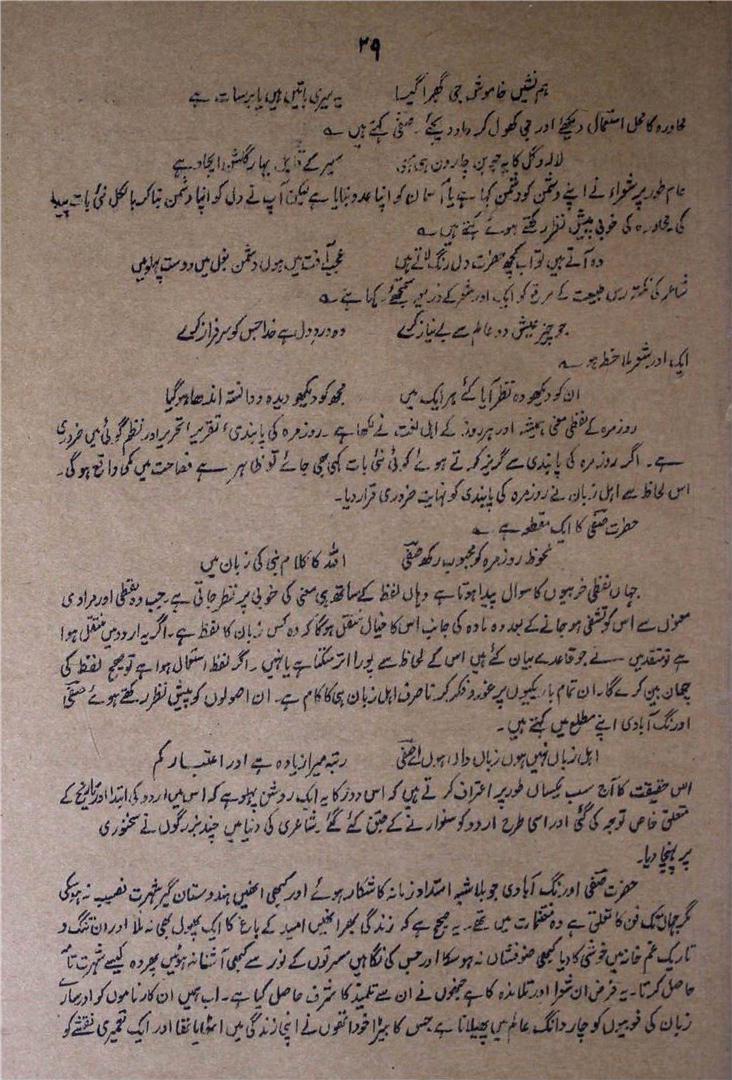 ۲۹
ہم نشیں خاموش جی گھبرا گیا یہ تیری باتیں ہیں یا برسات ہے
محاورہ کا محل استعمال دیکھئے اور جی کھول کر داد دیجئے۔ صفی کہتے ہیں ؎
لالہ و گل کا یہ جوبن چار دن ہی سہی سیر کے قابل بہار گلشن ایجاد ہے
عام طور پر شعراء نے اپنے دشمن کو دشمن کہا ہے یا آسمان کو اپنا عدو بنایا ہے لیکن آپ نے دل کو اپنا دشمن بتا کر بالکل نئی بات پیدا
کی محاورہ کی خوبی پیش نظر رکھتے ہوئے کہتے ہیں ؎
وہ آتے ہیں تو اب کچھ حضرت دل رنگ لاتے ہیں عجب آفت میں ہوں دشمن بغل میں دوست پہلو میں
شاعر کی نکتہ رس طبیعت کے مرقع کو ایک اور شعر کے ذریعہ سمجھئے۔ کہا ہے ؎
جو چیز عیش دو عالم سے بے نیاز کرے وہ درد دل ہے خدا جس کو سرفراز کرے
ایک اور شعر ملاحظہ ہو ؎
ان کو دیکھو وہ نظر آیا کئے ہر ایک میں مجھ کو دیکھو دیدہ و دانستہ اندھا ہو گیا
روزمرہ کے لفظی معنی ہمیشہ اور ہر روز کے اہل لغت نے لکھا ہے۔ روزمرہ کی پابندی تقریر تحریر اور نظم گوئی میں ضروری
ہے۔ اگر روزمرہ کی پابندی سے گریز کرتے ہوئے کوئی نئی بات کہی بھی جائے تو ظاہر ہے فصاحت میں کمی واقع ہو گی۔
اس لحاظ سے اہل زبان نے روزمرہ کی پابندی کو نہایت ضروری قرار دیا۔
حضرت صفی کا ایک مقطع ہے ؎
ملحوظ روزمرہ کو محبوب رکھ صفی اللہ کا کلام نبی کی زبان میں
جہاں لفظی خوبیوں کا سوال پیدا ہوتا ہے وہاں لفظ کے ساتھ ہی معنی کی خوبی پر نظر جاتی ہے۔ جب وہ لفظی اور مرادی
معنوں سے اس کو تشفی ہو جانے کے بعد وہ مادہ کی جانب اس کا خیال منتقل ہوگا کہ وہ کس زبان کا لفظ ہے۔ اگر یہ اردو میں منتقل ہوا
ہے تو متقدمین نے جو قاعدے بیان کئے ہیں اس کے لحاظ سے پورا اتر سکتا ہے یا نہیں۔ اگر لفظ استعمال ہوا ہے تو صحیح لفظ کی
چھان بین کرے گا۔ ان تمام باریکیوں پر غور و فکر کرنا صرف اہل زبان ہی کا کام ہے۔ ان اصولوں کو پیش نظر رکھتے ہوئے صفی
اورنگ آبادی اپنے مطلع میں کہتے ہیں۔
اہل زباں نہیں ہوں زباں داں ہوں اے صفی رتبہ میرا زیادہ ہے اور اعتبار کم
اس حقیقت کا آج سب یکساں طور پر اعتراف کرتے ہیں کہ اس دور کا یہ ایک روشن پہلو ہے کہ اس میں اردو کی ابتدا اور تاریخ کے
متعلق خاص توجہ کی گئی اور اسی طرح اردو کو سنوارنے کے جتن کئے گئے شاعری کی دنیا میں چند بزرگوں نے سخنوری
پر پہنچا دیا۔
حضرت صفی اورنگ آبادی جو بلا شبہ امتداد زمانہ کا شکار ہوئے اور کبھی انھیں ہندوستان گیر شہرت نصیب نہ ہو سکی
مگر جہاں تک فن کا تعلق ہے وہ مغتنمات میں تھے۔ یہ صحیح ہے کہ زندگی بھر انھیں امید کے باغ کا ایک پھول بھی نہ ملا اور ان تنگ و
تاریک غم خانہ میں خوشی کا دیا کبھی ضوفشاں نہ ہو سکا اور جس کی نگاہیں مسرتوں کے نور سے کبھی آشنا نہ ہوئیں پھر وہ کیسے شہرت تامہ
حاصل کرتا۔ یہ فرض ان شعرا اور تلامذہ کا ہے جنھوں نے ان سے تلمیذ کا شرف حاصل کیا ہے۔ اب ہمیں ان کارناموں کو اور ہمارے
زبان کی خوبیوں کو چار دانگ عالم میں پھیلانا ہے جس کا بیڑا خود انھوں نے اپنی زندگی میں اٹھایا تھا اور ایک تعمیری نقشے کو